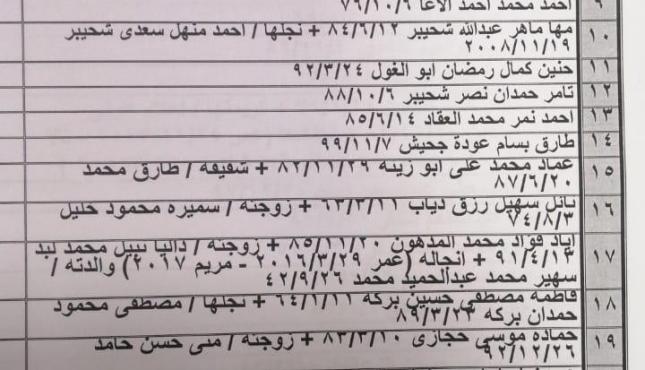 ٩ احمد محمد احمد الاغا ٧٦/١٠/٦
١٠ مها ماهر عبدالله شحيبر ٨٤/٦/١٢ + نجلها / احمد منهل سعدي شحيبر
٢٠٠٨/١١/١٩
١١ حنين كمال رمضان ابو الغول ٩٢/٣/٢٤
١٢ تامر حمدان نصر شحيبر ٨٨/١٠/٦
١٣ احمد نمر محمد العقاد ٨٥/٦/١٤
١٤ طارق بسام عودة جحيش ٩٩/١١/٧
١٥ عماد محمد علي ابو زينه ٨٢/١١/٢٩ + شقيقه / طارق محمد
٨٧/٦/٢٠
١٦ سهيل رزق دياب ٦٣/٣/١١ + زوجته / سميره محمود خليل
٧٤/٨/٣
١٧ اياد فؤاد محمد المدهون ٨٥/١١/٢٠ + زوجته / داليا نبيل محمد لبد
٩١/٤/١٣ + انجاله (عمر ٢٠١٦/٣/٢٩ - مريم ٢٠١٧) والدته /
سهير محمد عبدالحميد محمد ٤٢/٩/٢٦
١٨ فاطمه مصطفى حسين بركه ٦٤/١/١١ + نجلها / مصطفى محمود
حمدان بركه ٨٩/٣/٢٣
١٩ حماده موسى حجازي ٨٣/٣/١٠ + زوجته / منى حسن حامد
٩٢/١٢/٢٦